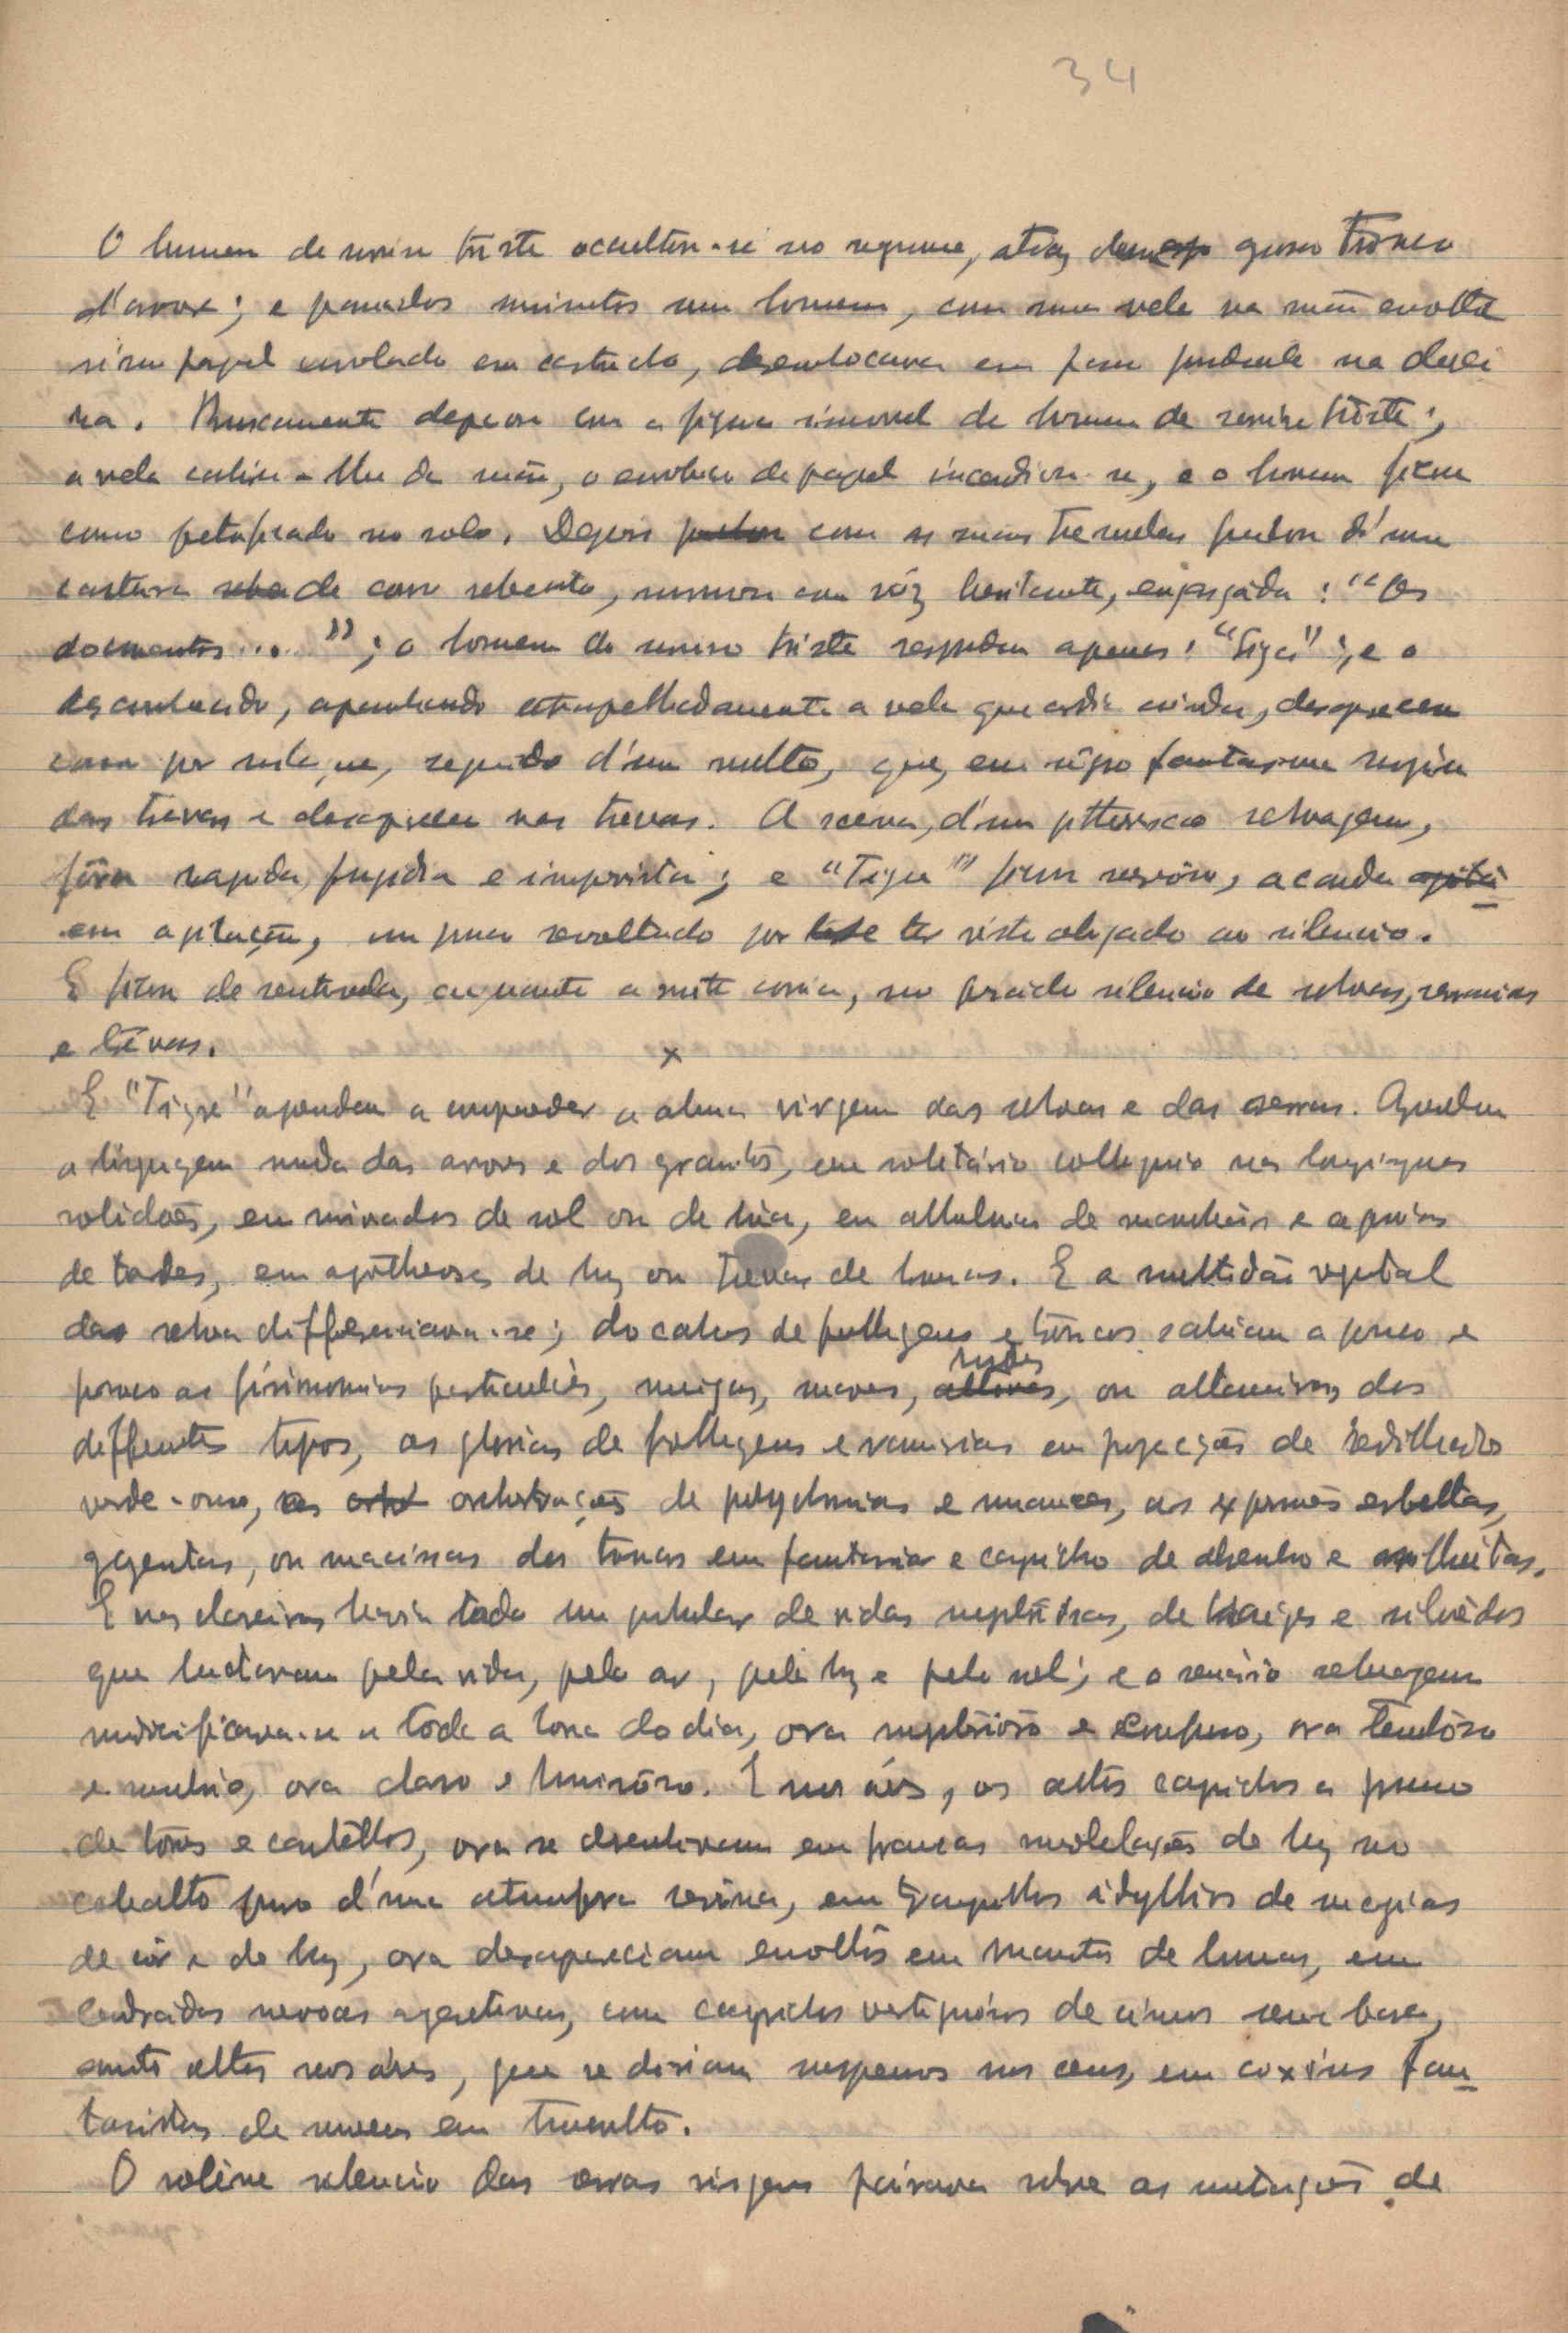 34
O homem de sorriso triste occultou-se no negrume, atraz dum grosso tronco
d'arvore; e passados minutos um homem, com uma vela na mão envolta
n'um papel enrolado em cartucho, desembocava em passo prudente na clarei
ra. Bruscamente deparou com a figura immovel do homem de sorriso triste;
a vela cahiu-lhe da mão, o envolucro de papel incendiou-se, e o homem ficou
como petrificado no solo. Depois com as mãos tremulas puxou d'uma
carteira de couro sebenta, murmurou com vóz hesitante, engasgada: "Os
documentos..."; o homem do sorriso triste respondeu apenas: "Siga"; e o
desconhecido, apanhando atrapalhadamente a vela que ardia ainda, desapareceu
como por milagre, seguido d'um vulto, que, em fantasma surgira
das trevas e desapareceu nas trevas. A scena, d'um pittoresco selvagem,
fôra rapida, fugidia e imprevista; e "Tigre" ficou nervôso, a cauda
em agitação, um pouco revoltado por se ter visto obrigado ao silencio.
E ficou de sentinela, emquanto a noite corria, no pesado silencio de selvas, serranias
e trévas.
x
E "Tigre" aprendeu a comprehender a alma virgem das selvas e das serras. Aprendeu
a linguagem muda das arvores e dos granitos, em solitário colloquio nas longinquas
solidões, em miradas de sol ou de lúa, em alleluias de manhãs e agonias
de tardes, em apótheoses de luz ou trevas de brumas. E a multidão vegetal
da selva differenciava-se; do cahos de folhagens e troncos sahiam a pouco e
pouco as fisionomias particulares, meigas, suaves, rudes, ou altaneiras dos
differentes tipos, as glorias de folhagens e ramarias em projecções de rendilhados
verde-ouro, as orchestrações de polychromias e nuances, as expressões esbeltas,
gigantes, ou macissas dos troncos em fantasia e capricho de desenho e silhuetas.
E nas clareiras havia todo um pulular de vidas mysteriosas, de tojos e silvêdos
que luctavam pela vida, pelo ar, pela luz e pelo sol; e o scenário selvagem
modificava-se a toda a hora do dia, ora mysterióso e confuso, ora tenebrôso
e sombrio, ora claro e luminôso. E nos áres, os altos caprichos a prumo
de tôrres e castéllos, ora se desenhavam em francas modelações de luz no
cobalto puro d'uma atmosfera serena, em tranquillos idyllios de magias
de côr e de luz, ora desapareciam envoltos em mantos de brumas, em
cendradas nevoas agoretivas, com caprichos vertiginósos de cimos sem base,
muito altos nos áres, que se diriam suspensos nos ceus, em coxins fan
tasistas de nuvens em tumulto.
O soléne silencio das serras virgens pairava sobre as mutações de